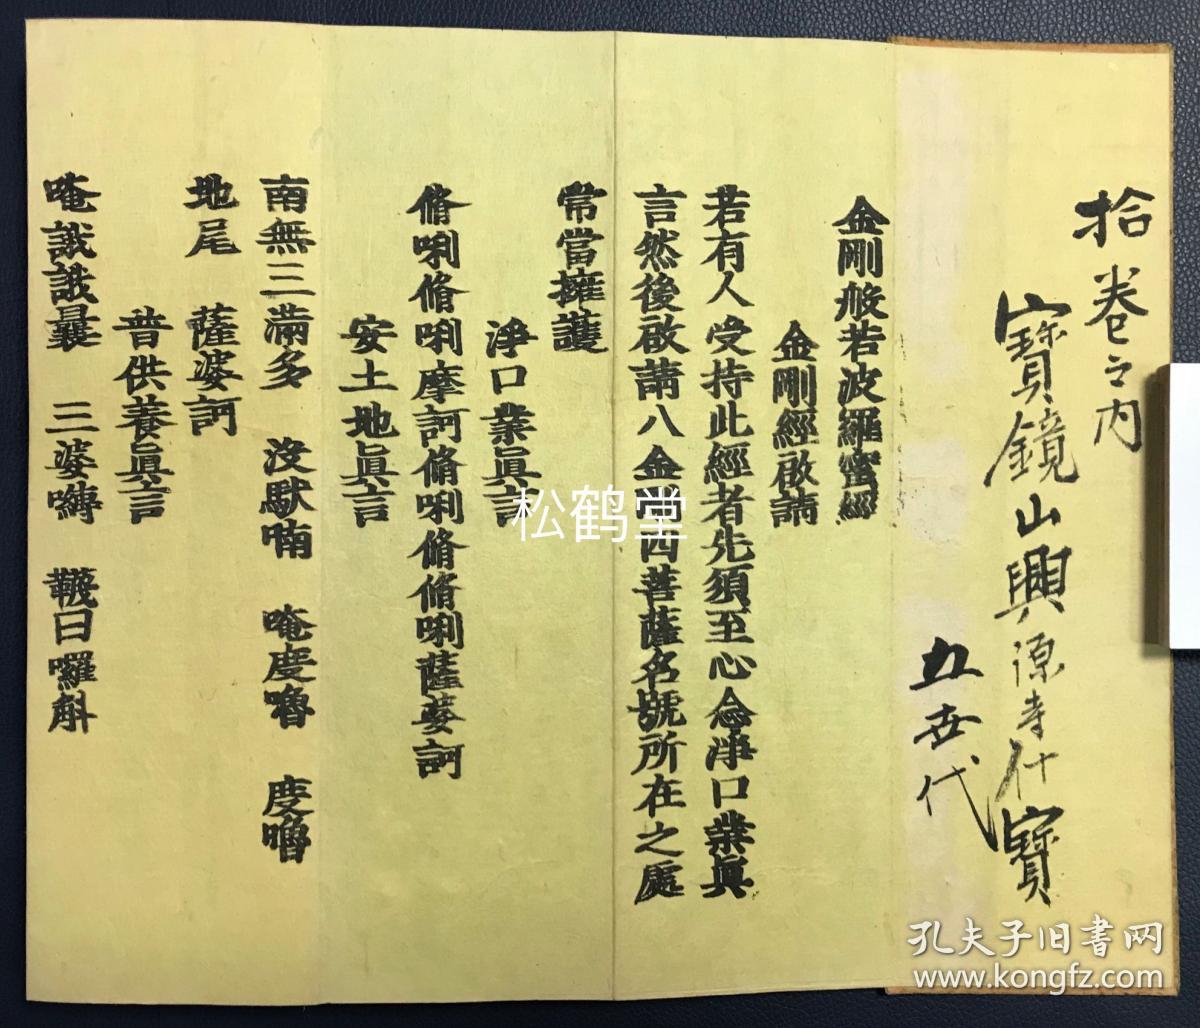 拾卷之内
寶鏡山興源寺什寶
五世代
金剛般若波羅蜜經
金剛經啟請
若有人受持此經者先須至心念淨口業眞
言然後啟請八金剛四菩薩名號所在之處
常當擁護
淨口業眞言
脩唎脩唎摩訶脩唎脩脩唎薩婆訶
安土地眞言
南無三滿多 沒馱喃 唵度嚕 度嚕
地尾 薩婆訶
普供養眞言
唵誐誐曩 三婆嚩 韈日囉斛
松鹤堂
孔夫子旧書网
www.kongfz.com